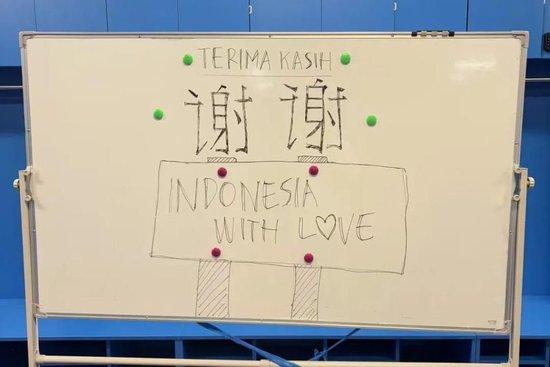 TERIMA KASIH
谢 谢
INDONESIA
WITH L♡VE